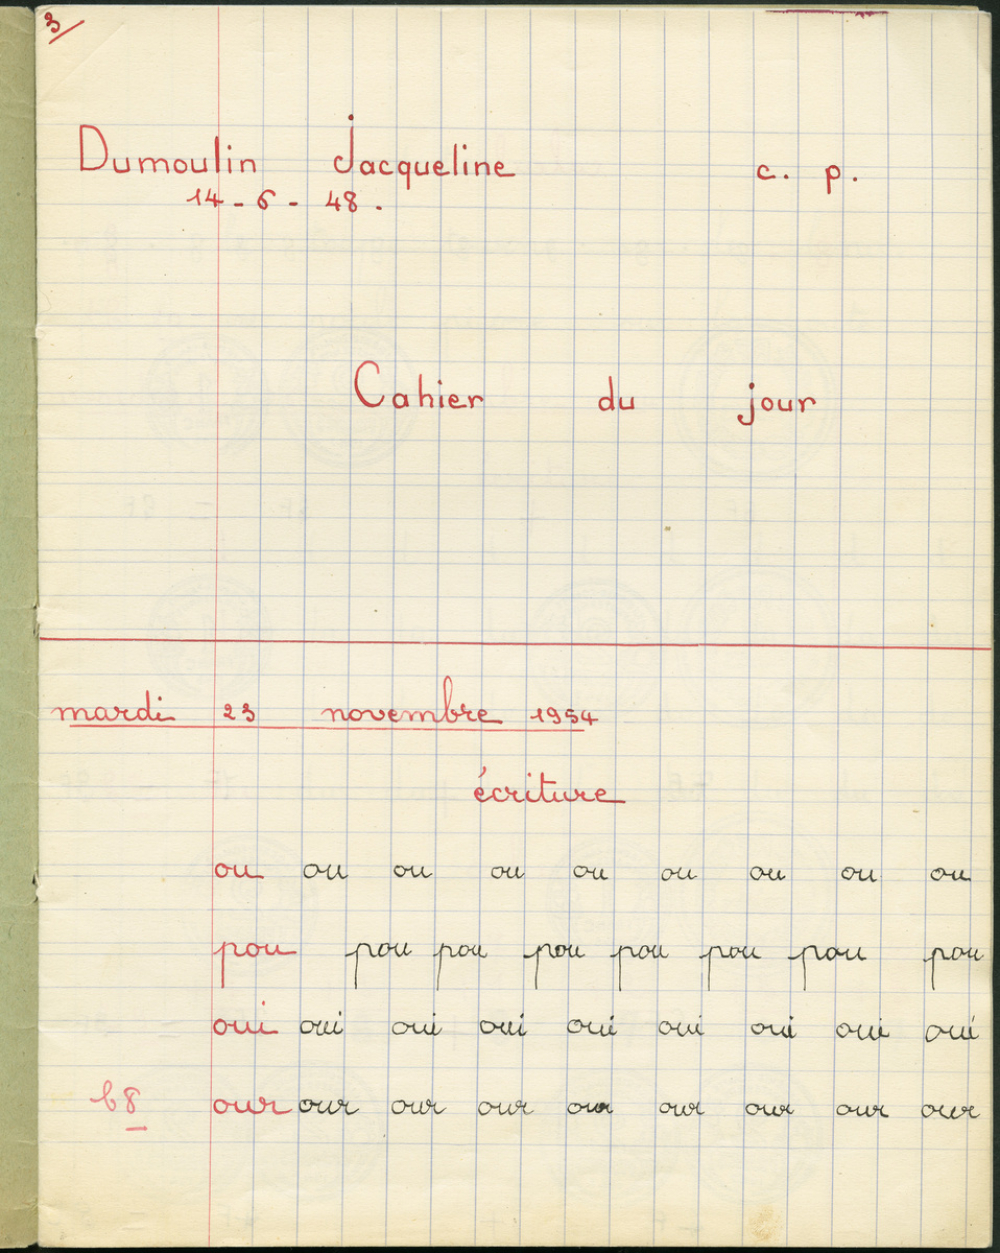 3
Dumoulin Jacqueline c. p.
14 - 6 - 48.
Cahier du jour
mardi 23 novembre 1954
écriture
ou ou ou ou ou ou ou ou ou
pou pou pou pou pou pou pou pou
oui oui oui oui oui oui oui oui oui
b8 our our our our our our our our our